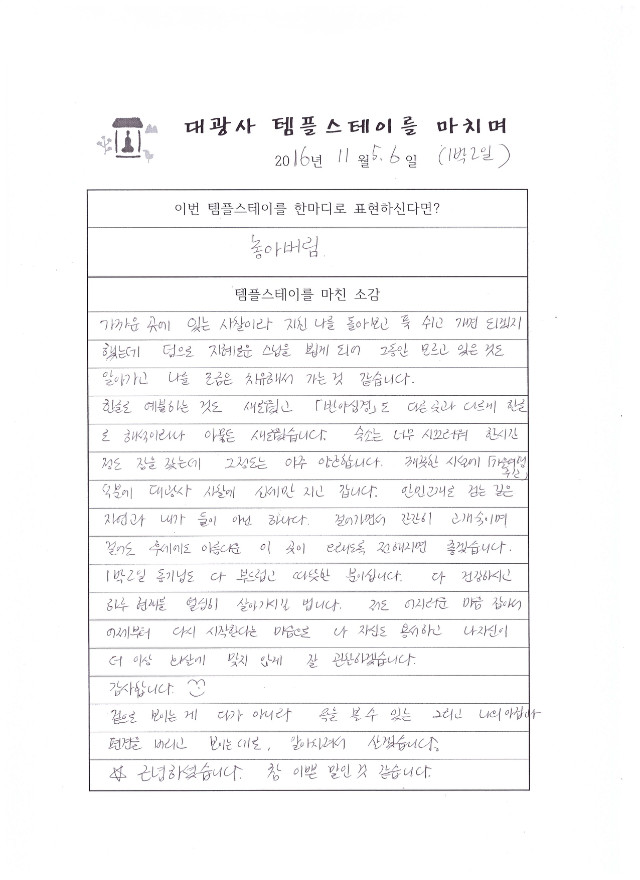 대광사 템플스테이를 마치며
2016년 11월 5.6일 (1박2일)
이번 템플스테이를 한마디로 표현하신다면?
놓아버림
템플스테이를 마친 소감
가까운 곳에 있는 사찰이라 지친 나를 돌아보고 푹 쉬고 가면 되겠지
했는데 덤으로 지혜로운 스님을 뵙게 되어 그동안 모르고 있은 것도
알아가고 나를 조금은 치유해서 가는 것 같습니다.
한글로 예불하는 것도 새로웠고 「반야심경」도 다른 곳과 다르게 한글
로 해석이라나 아뭏든 새로웠습니다. 숙소는 너무 시끄러워 한시간
정도 잠을 잤는데 그정도는 아주 양호합니다. 깨끗한 시설에
덕분에 대광사 사찰에 신세만 지고 갑니다. 만인고개로 걷는 길은
자연과 내가 둘이 아닌 하나다. 걸어가면서 간간히 고개숙이며
걸어도 후세에도 아름다운 이 곳이 오래도록 전해지면 좋겠습니다.
1박2일 동기님도 다 부드럽고 따뜻한 분이십니다. 다 건강하시고
하루 열심히 살아가시길 빕니다. 저도 어지러운 마음 잡아서
어제부터 다시 시작한다는 마음으로 나 자신도 용서하고 나자신이
더 이상 화살에 맞지 않게 잘 관찰하겠습니다.
감사합니다.
겉으로 보이는 게 다가 아니라 속을 볼 수 있는 그리고 나의 아집과
편견을 버리고 보이는대로, 알아지려서 살겠습니다.
☆ 근념하셨습니다. 참 이쁜 말인 것 같습니다.